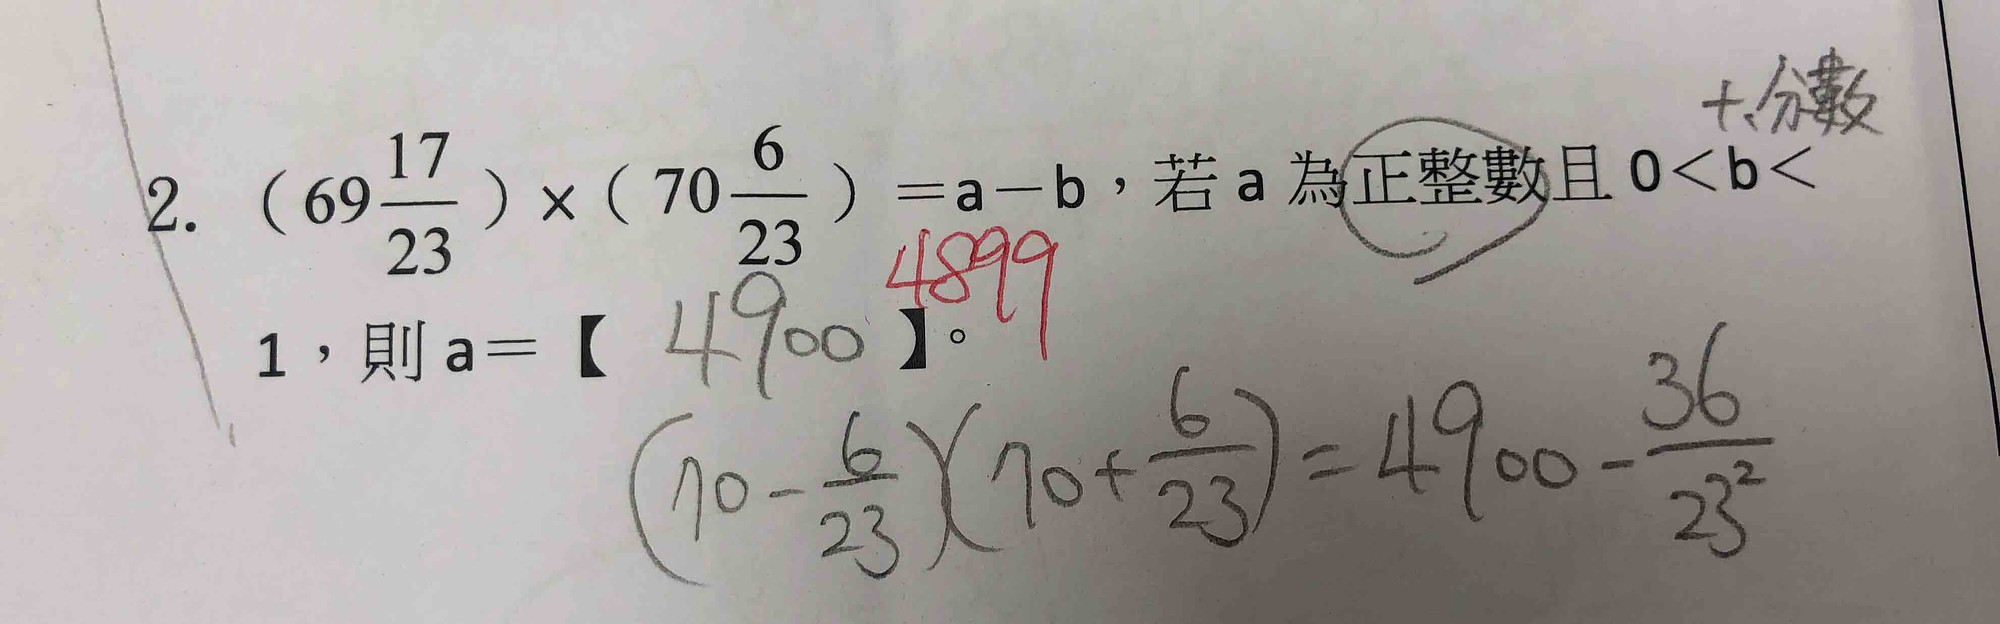 +、分數
2. （69 17/23）×（70 6/23）＝a－b，若 a 為正整數且 0＜b＜
4899
1，則 a＝【 4900 】。
(70 - 6/23)(70 + 6/23) = 4900 - 36/23²